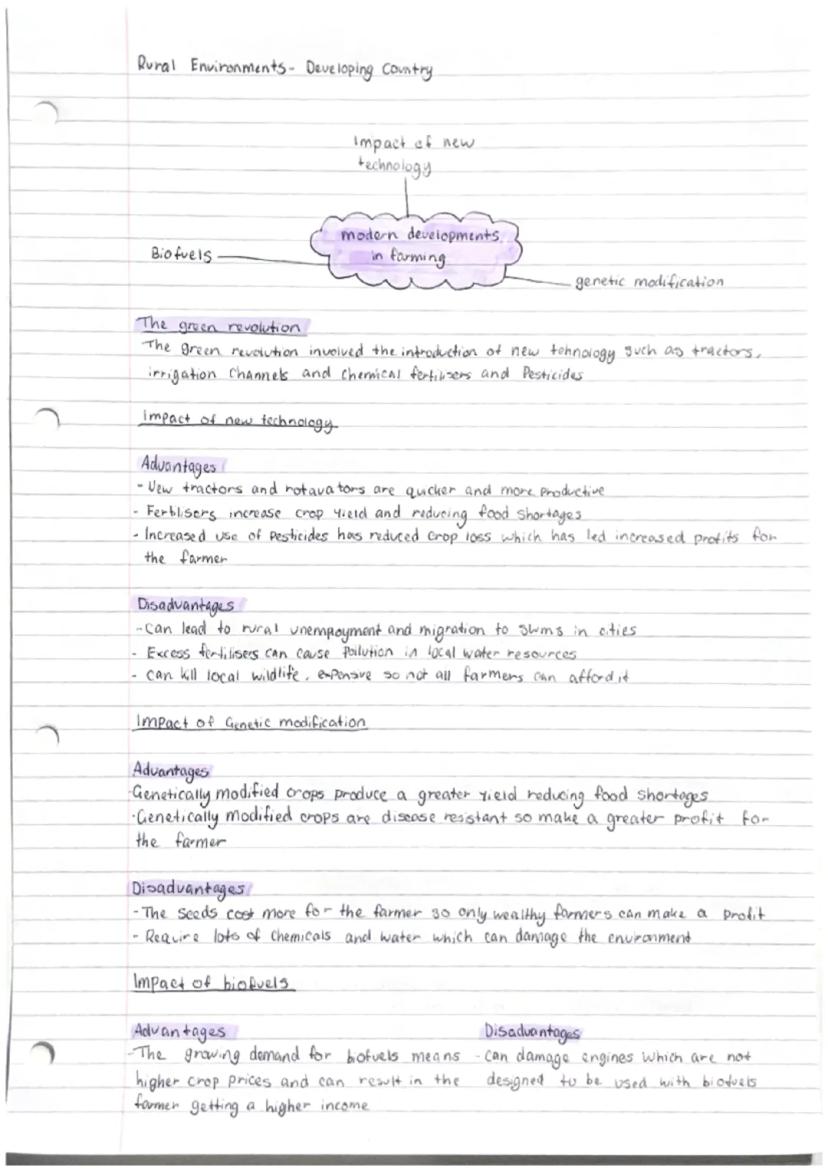 Rural Environments - Developing Country
Impact of new
technology
modern developments
in farming
Biofuels
genetic modification
The green revolution
The green revolution involved the introduction of new tehnology such as tractors,
irrigation channels and chemical fertilisers and Pesticides
Impact of new technology
Advantages
- New tractors and rotavators are quicker and more productive
- Fertlisers increase crop yield and reducing food shortages
- Increased use of Pesticides has reduced crop loss which has led increased profits for
the farmer
Disadvantages
- Can lead to rural unempoyment and migration to slums in cities
- Excess fertilisers can cause Pollution in local water resources
- can kill local wildlife, expensive so not all farmers can afford it
Impact of Genetic modification
Advantages
- Genetically modified crops produce a greater yield reducing food shortages
- Genetically modified crops are disease resistant so make a greater profit for
the farmer
Disadvantages
- The seeds cost more for the farmer so only wealthy farmers can make a profit
- Require lots of chemicals and water which can damage the environment
Impact of biofuels
Advantages
- The growing demand for biofuels means
higher crop prices and can result in the
farmer getting a higher income
Disadvantages
- can damage engines which are not
designed to be used with biofuels